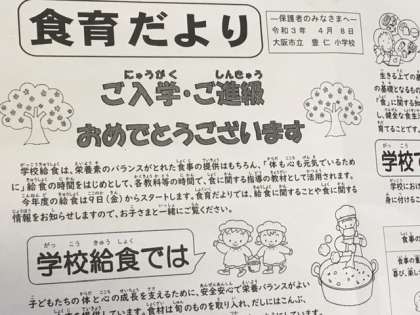 食育だより
―保護者のみなさまへ―
令和3年 4月 8日
大阪市立 豊仁 小学校
にゅうがく しんきゅう
ご入学・ご進級
おめでとうございます
学校給食は、栄養素のバランスがとれた食事の提供はもちろん、「体も心も元気でいるため
に」給食の時間をはじめとして、各教科等の時間で、食に関する指導の教材として活用されます。
今年度の給食は9日(金)からスタートします。食育だよりでは、給食に関することや食に関する
情報をお知らせしますので、お子さまと一緒にご覧ください。
がっこうきゅうしょく
学校給食では
子どもたちの体と心の成長を支えるために、安全安心で栄養バランスがよい
食材は旬のものを取り入れ、だしにはこんぶ、
生きる上の基
の基礎となるもの
「食」に関する
し、健全な食生
育てることです。
学校で
学校にお
身に付けるこ
食事の
食事の重
喜び、楽し